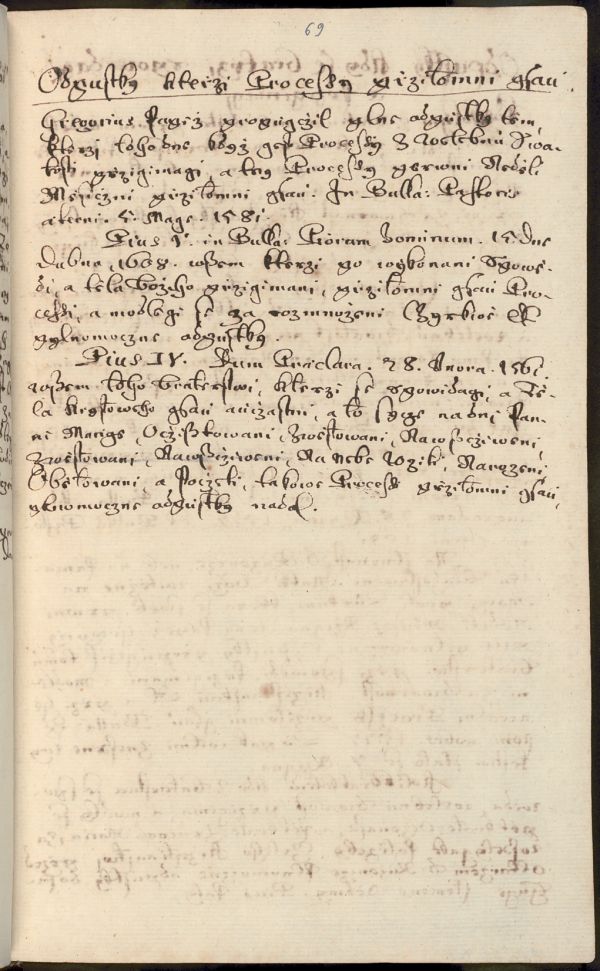 69
Odpustky kterzi Processy przitomni gsau.
Gregorius Papež propugczil plne odpustky tem,
kterzi toho dne když gest Processy z Rostebnū Swa-
tosti przigimagi, a tey Processy perwni Neděli
Mesiczni przitomni gsau. In Bulla: Pastoris
aeterni. 5. Mage. 1581.
Pius V. in Bulla: Piorum hominum. 15. dne
Dubna, 1568. wssem kterzi po wykonani Spowě-
di, a tela božiho przigimani, przitomni gsau Pro-
cessi, a modlegi se za rozmnoženi Czyrkwe
plnomoczne odpustky.
Pius IV. Dum Praeclara. 28. Unora. 1561.
wssem toho bratrstwi, kterzi se spowidagi, a Tě-
la krystoweho gsau auczastni, a to sycze na dni Pan-
ni Marige, Oczisstowani, Zwěstowani, Nawsstiweni,
Na Nebe Wzeti, Narozeni,
Obětowani, a Poczeti, takowe Processi przitomni gsau,
plnomoczne odpustky nadal.